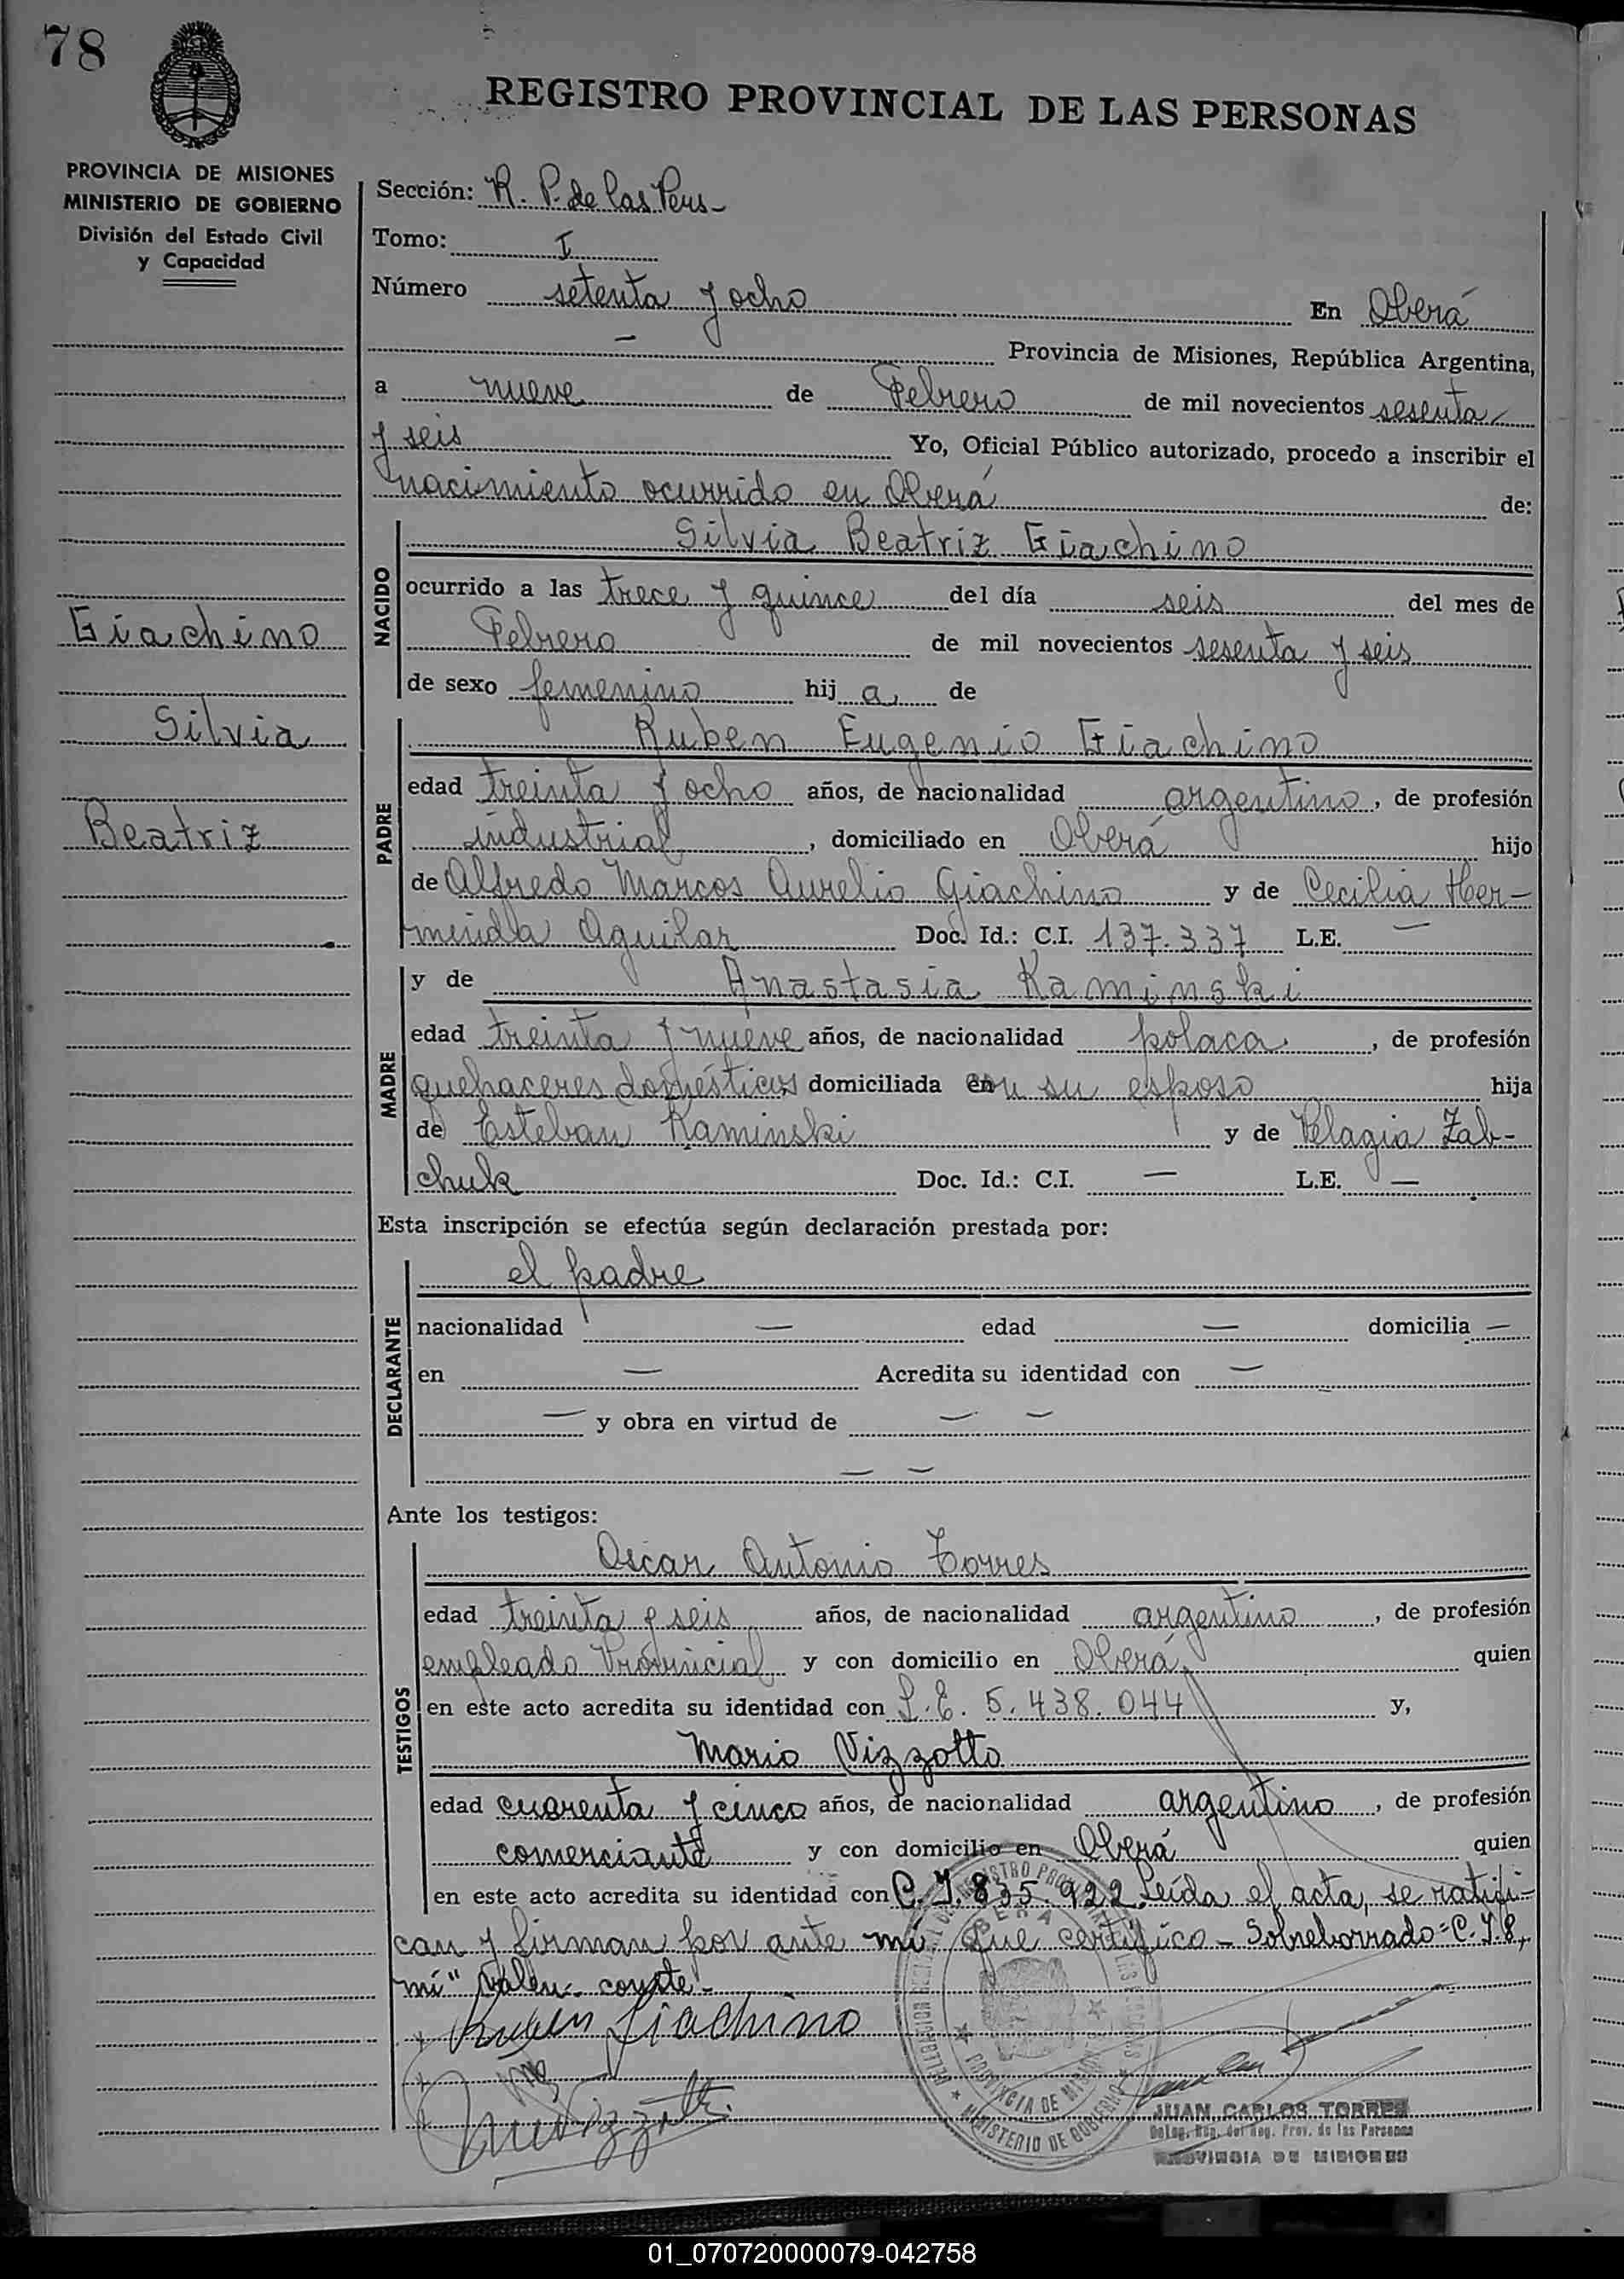 78
REGISTRO PROVINCIAL DE LAS PERSONAS
PROVINCIA DE MISIONES
MINISTERIO DE GOBIERNO
División del Estado Civil
y Capacidad
Sección: R. P. de las Pers-
Tomo: I
Número setenta y ocho En Oberá
— Provincia de Misiones, República Argentina,
a nueve de Febrero de mil novecientos sesenta
y seis Yo, Oficial Público autorizado, procedo a inscribir el
nacimiento ocurrido en Oberá de:
NACIDO
Silvia Beatriz Giachino
ocurrido a las trece y quince del día seis del mes de
Febrero de mil novecientos sesenta y seis
de sexo femenino hij a de
Giachino
Silvia
Beatriz
PADRE
Ruben Eugenio Giachino
edad treinta y ocho años, de nacionalidad argentino, de profesión
industrial, domiciliado en Oberá hijo
de Alfredo Marcos Aurelio Giachino y de Cecilia Her-
minda Aguilar Doc. Id.: C.I. 137.337 L.E. —
MADRE
y de Anastasia Kaminski
edad treinta y nueve años, de nacionalidad polaca, de profesión
quehaceres domésticos domiciliada con su esposo hija
de Esteban Kaminski y de Pelagia Zab-
chuk Doc. Id.: C.I. — L.E. —
Esta inscripción se efectúa según declaración prestada por:
DECLARANTE
el padre
nacionalidad — edad — domicilia —
en — Acredita su identidad con —
— y obra en virtud de — —
— —
Ante los testigos:
TESTIGOS
Oscar Antonio Torres
edad treinta y seis años, de nacionalidad argentino, de profesión
empleado Provincial y con domicilio en Oberá quien
en este acto acredita su identidad con L.E. 5.438.044 y,
Mario Vizzotto
edad cuarenta y cinco años, de nacionalidad argentino, de profesión
comerciante y con domicilio en Oberá quien
en este acto acredita su identidad con C.I. 835.922. Leída el acta, se ratifi-
can y firman por ante mí que certifico - Sobreborrado=C.I.8,
mi" Valen.-
Ruben Giachino
JUAN CARLOS TORRES
Deleg. Reg. del Reg. Prov. de las Personas
PROVINCIA DE MISIONES
PROVINCIA DE MISIONES
MINISTERIO DE GOBIERNO
01_070720000079-042758